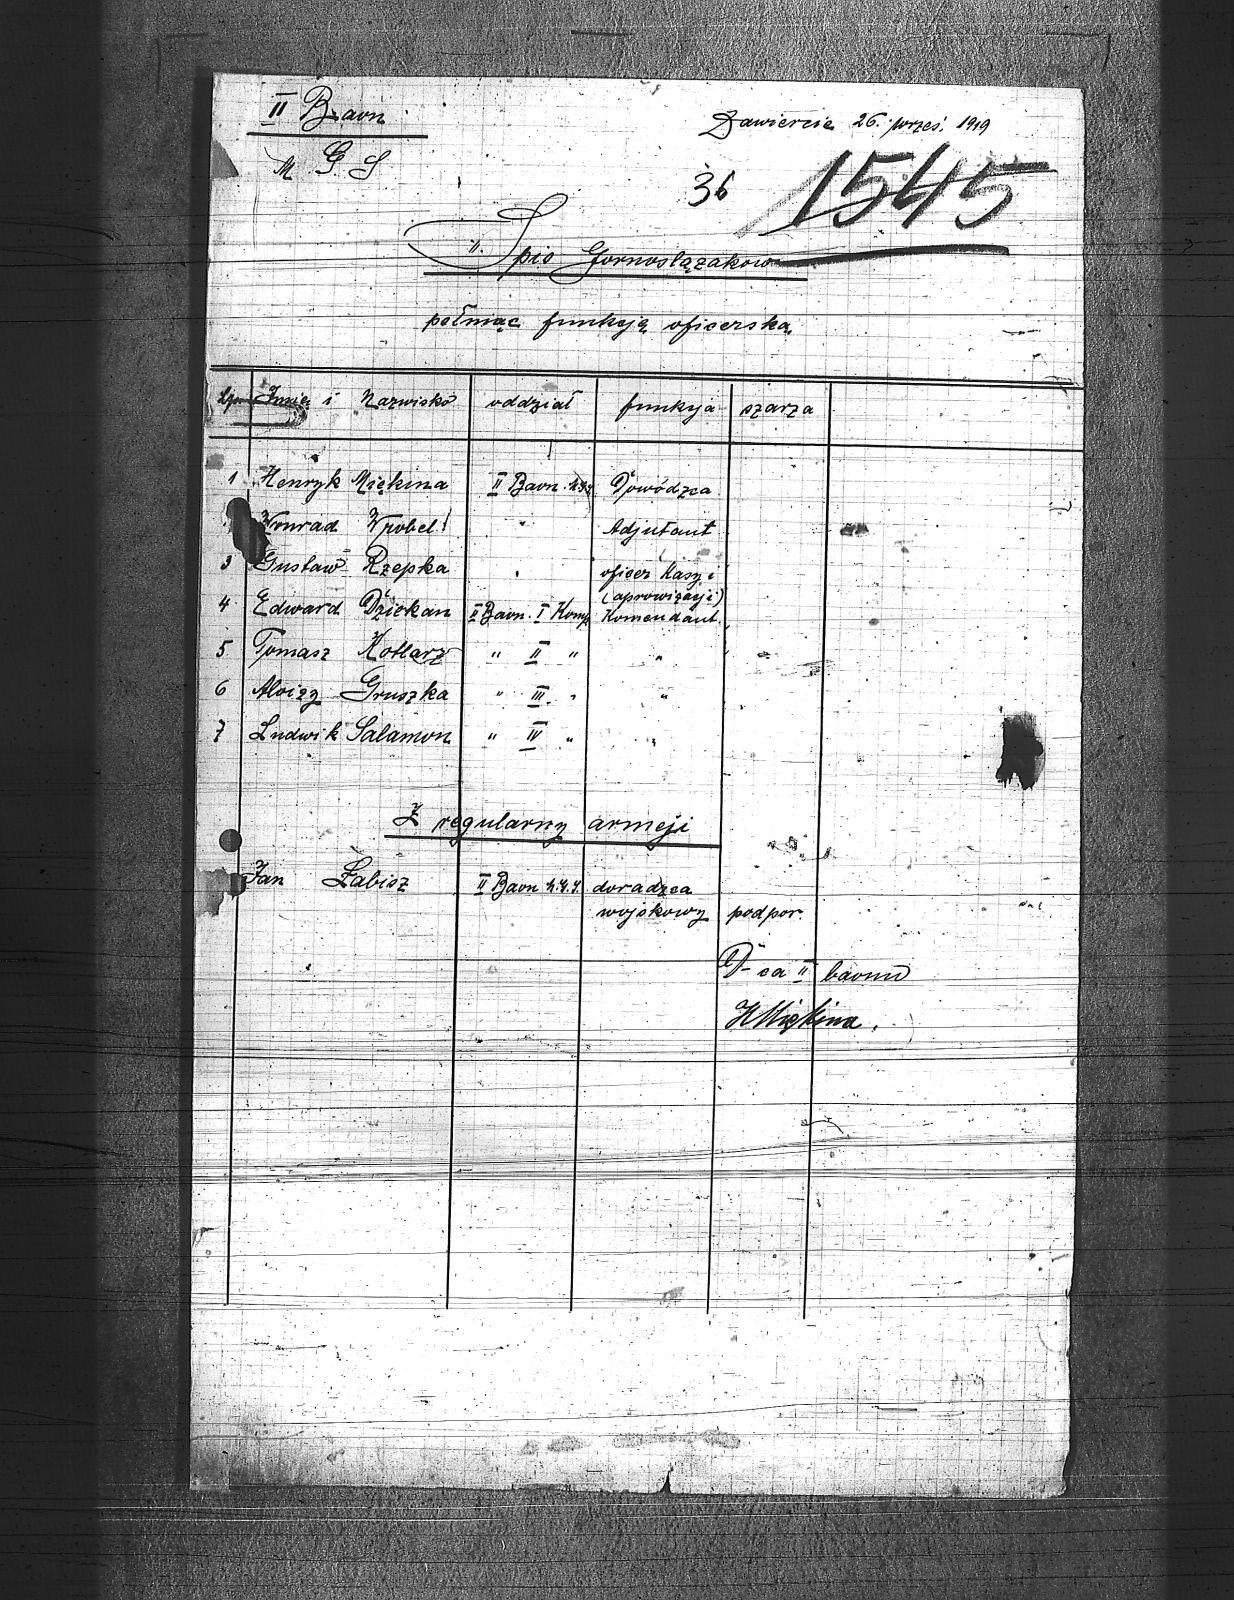 II Baon
M G S
Zawiercie 26. wrześ. 1919
36 1545
Spis Gornoslązakow
pełniąc funkcją oficerską
Lp. Imię i Nazwisko oddział funkcja szarza
1 Henryk Miękina II Baon Dowódzca
Konrad Wrobel " Adjutant
3 Gustaw Rzepka " oficer Kasy i
(aprowizacji)
4 Edward Dziekan II Baon. I Komp Komendant
5 Tomasz Kotlarz " II " "
6 Aloizy Gruszka " III " "
7 Ludwik Salamon " IV " "
Z regularny armeji
Jan Łabisz II Baon doradzca
wojskowy podpor.
D-ca II baonu
H Miękina.